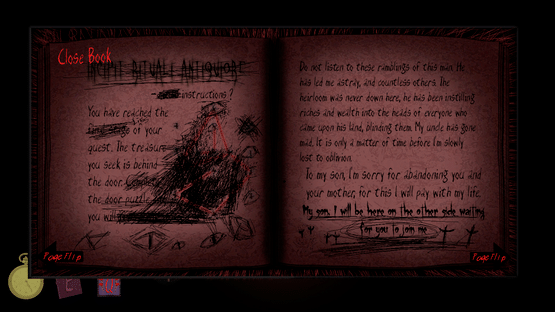 Close Book
INCIPIT RITUALE ANTIQUIORE
instructions?
You have reached the
final stage of your
quest. The treasure
you seek is behind
the door.
the door puzzle
you
Do not listen to these ramblings of this man. He
has led me astray, and countless others. The
heirloom was never down here, he has been instilling
riches and wealth into the heads of everyone who
came upon his land, blinding them. My uncle has gone
mad. It is only a matter of time before I'm slowly
lost to oblivion.
To my son, I'm sorry for abandoning you and
your mother, for this I will pay with my life.
My son, I will be here on the other side waiting
for you to join me
PageFlip
PageFlip